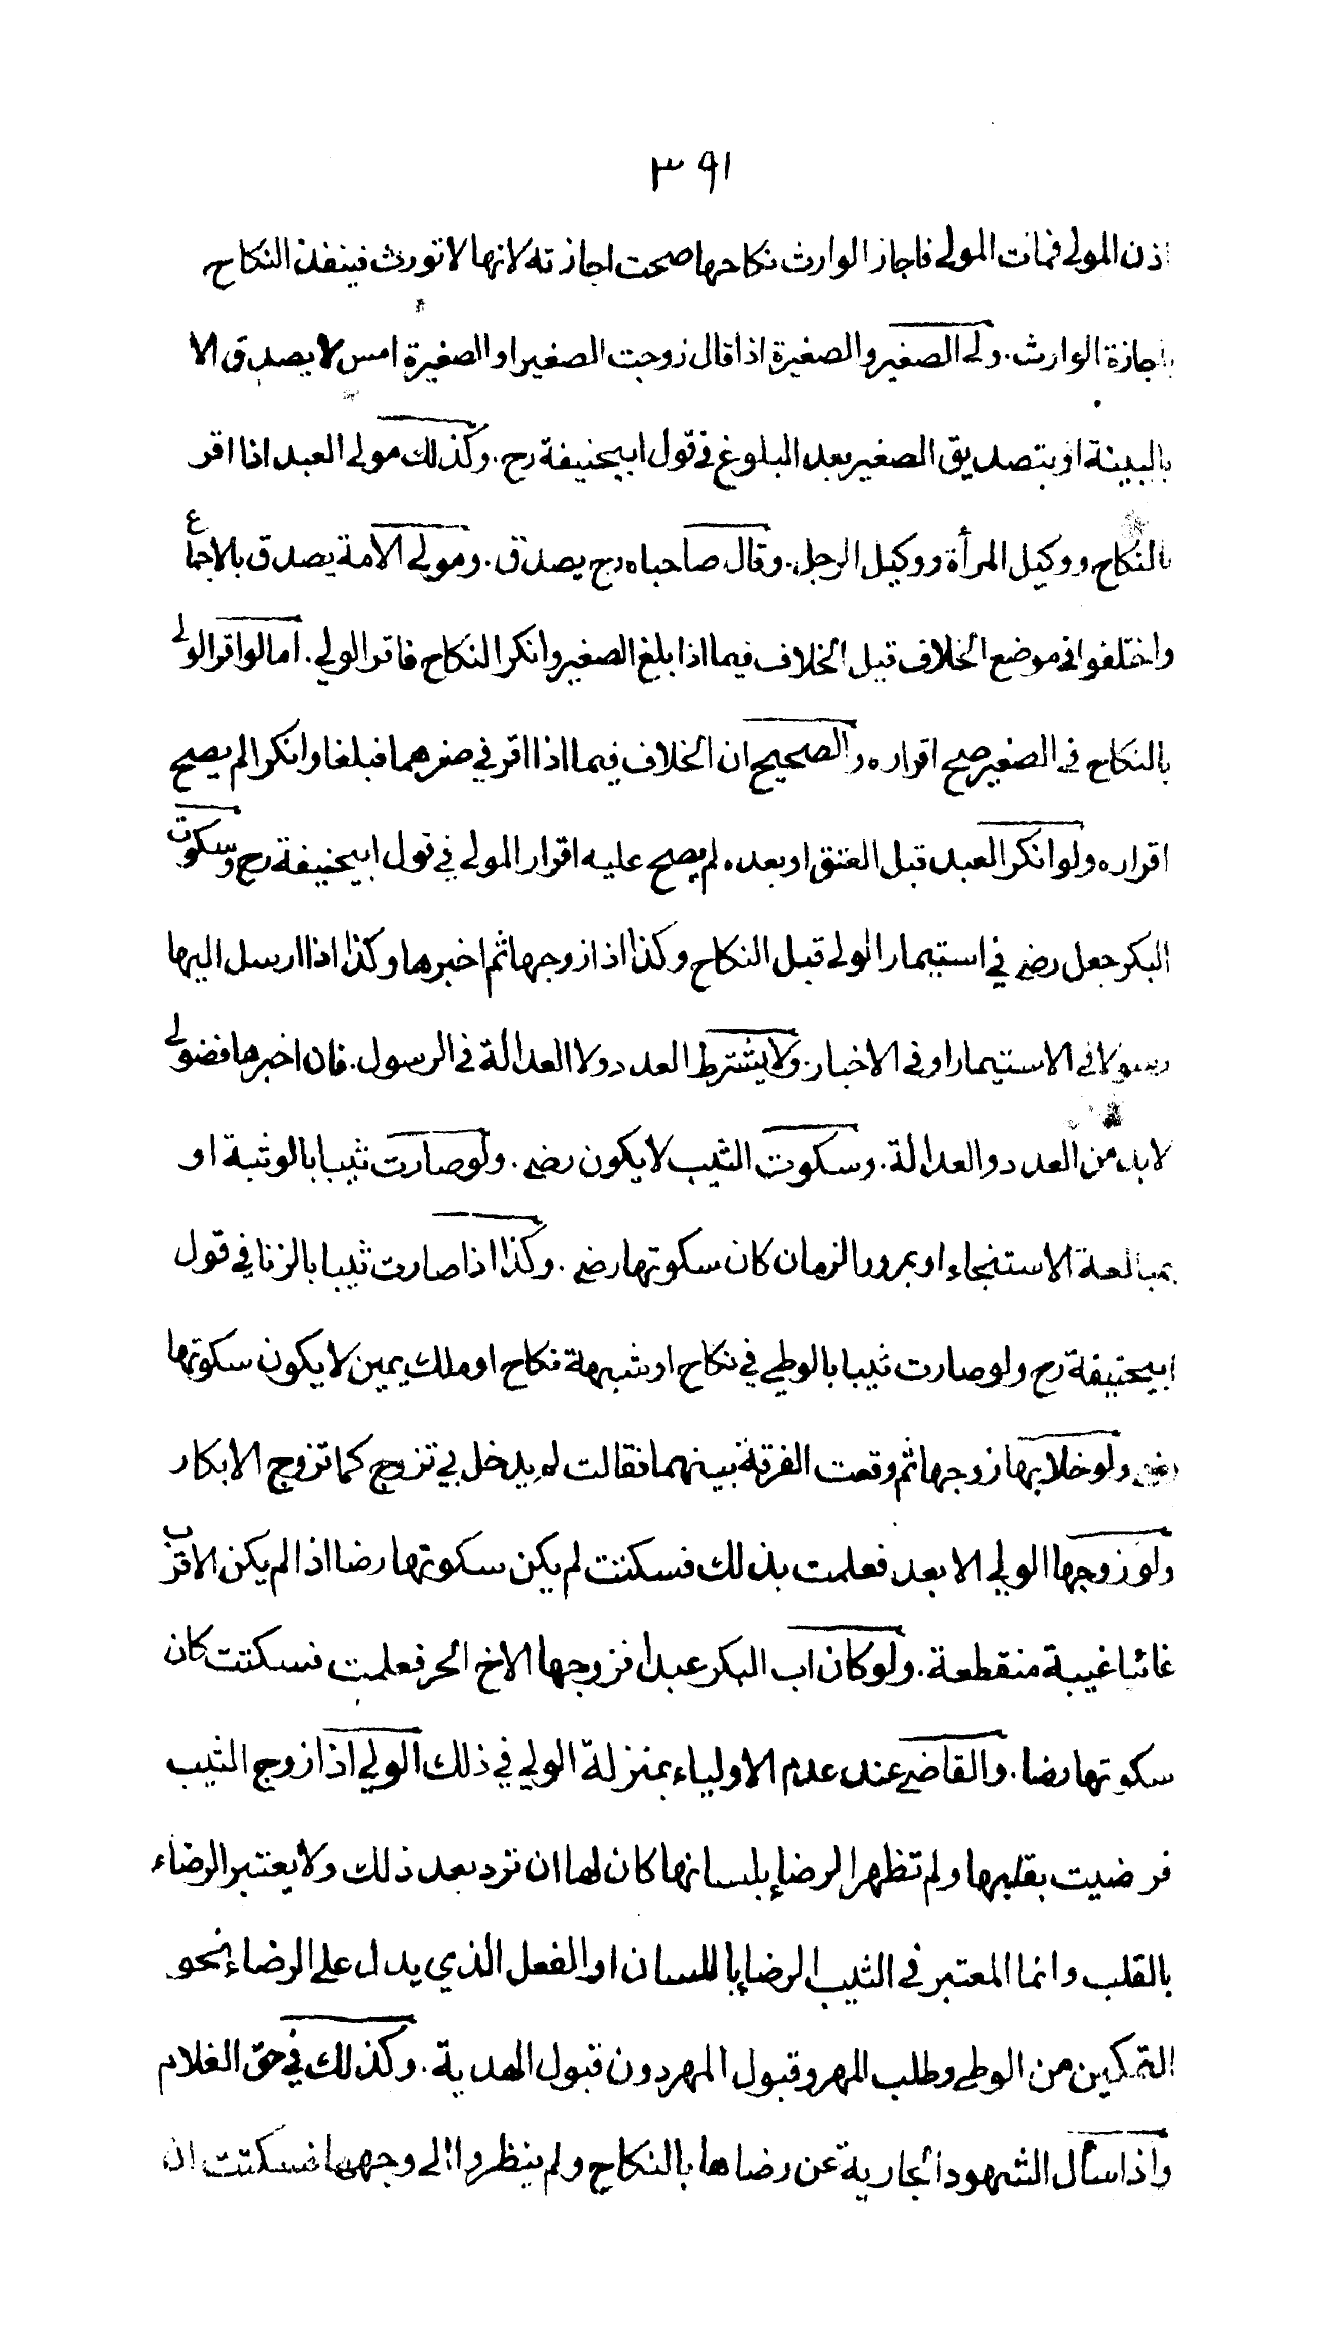 ٣٩١
اذن المولى فمات المولى فاجاز الوارث نكاحها صحت اجازته لانها لا تورث فينفذ النكاح
باجازة الوارث. ولى الصغير والصغيرة اذا قال زوجت الصغير او الصغيرة امس لا يصدق الا
بالبينة او بتصديق الصغير بعد البلوغ في قول ابيحنيفة رح. وكذلك مولى العبد اذا اقر
بالنكاح ووكيل المرأة ووكيل الرجل. وقال صاحباه رح يصدق. ومولى الامة يصدق بالاجماع
واختلفوا في موضع الخلاف قيل الخلاف فيما اذا بلغ الصغير وانكر النكاح فاقر الولي. اما لو اقر الولى
بالنكاح في الصغير صح اقراره والصحيح ان الخلاف فيما اذا اقر في صغرهما فبلغا وانكرا لم يصح
اقراره ولو انكر العبد قبل العتق او بعده لم يصح عليه اقرار المولى في قول ابيحنيفة رح وسكوت
البكر جعل رضى في استيمار الولى قبل النكاح وكذا اذا زوجها ثم اخبرها وكذا اذا ارسل اليها
رسولا في الاستيمار او في الاخبار. ولا يشترط العدد ولا العدالة في الرسول. فان اخبرها فضولى
لابد من العدد والعدالة. وسكوت الثيب لا يكون رضى. ولو صارت ثيبا بالوثبة او
بمبالغة الاستنجاء او بمرور الزمان كان سكوتها رضى. وكذا اذا صارت ثيبا بالزنا في قول
ابيحنيفة رح ولو صارت ثيبا بالوطي في نكاح او شبهة نكاح او ملك يمين لا يكون سكوتها
رضى ولو خلا بها زوجها ثم وقعت الفرقة بينهما فقالت لم يدخل بي تزوج كما تزوج الابكار
ولو زوجها الولي الابعد فعلمت بذلك فسكتت لم يكن سكوتها رضا اذا لم يكن الاقرب
غائبا غيبة منقطعة. ولو كان اب البكر عبدا فزوجها الاخ الحر فعلمت فسكتت كان
سكوتها رضا. والقاضي عند عدم الاولياء بمنزلة الولي في ذلك الولي اذا زوج الثيب
فرضيت بقلبها ولم تظهر الرضا بلسانها كان لها ان ترد بعد ذلك ولا يعتبر الرضاء
بالقلب وانما المعتبر في الثيب الرضا باللسان او الفعل الذي يدل على الرضاء نحو
التمكين من الوطي وطلب المهر وقبول المهر دون قبول الهدية. وكذلك في حق الغلام
واذا سأل الشهود الجارية عن رضاها بالنكاح ولم ينظروا الى وجهها فسكتت ان